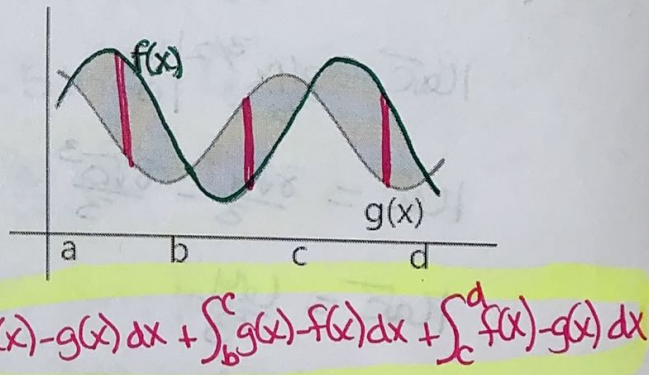 f(x)
g(x)
a b c d
x)-g(x) dx + ∫_b^c g(x)-f(x) dx + ∫_c^d f(x)-g(x) dx